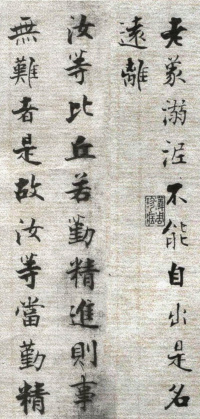 老象溺泥不能自出是名
遠離
汝等比丘若勤精進則事
無難者是故汝等當勤精